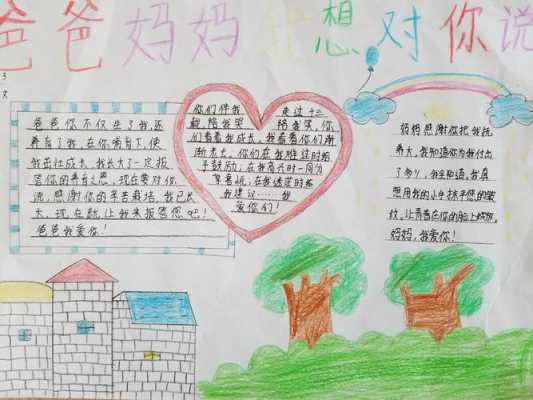 爸爸妈妈我想对你说
爸爸你不仅生了我,还
养育了我,在你哺育下,使
我茁壮成长,我长大了一定报
答你的养育之恩,现在要对你
说,感谢你的辛苦栽培,我已长
大,现在就让我来报答您吧!
爸爸我爱你!
你们伴我 走过十二
载,陪我哭 陪我笑,你
们看着我成长,我看着你们渐
渐老去,你们在我难过时给
予鼓励,在我高兴时一同为
享喜悦,在我迷茫时给
我建议……我
爱你们!
妈妈感谢你把我抚
养大,我知道你为我付出
了多少,我全知道,我真
想用我的小手抹平您的皱
纹,让青春在你的脸上绽放,
妈妈,我爱你!